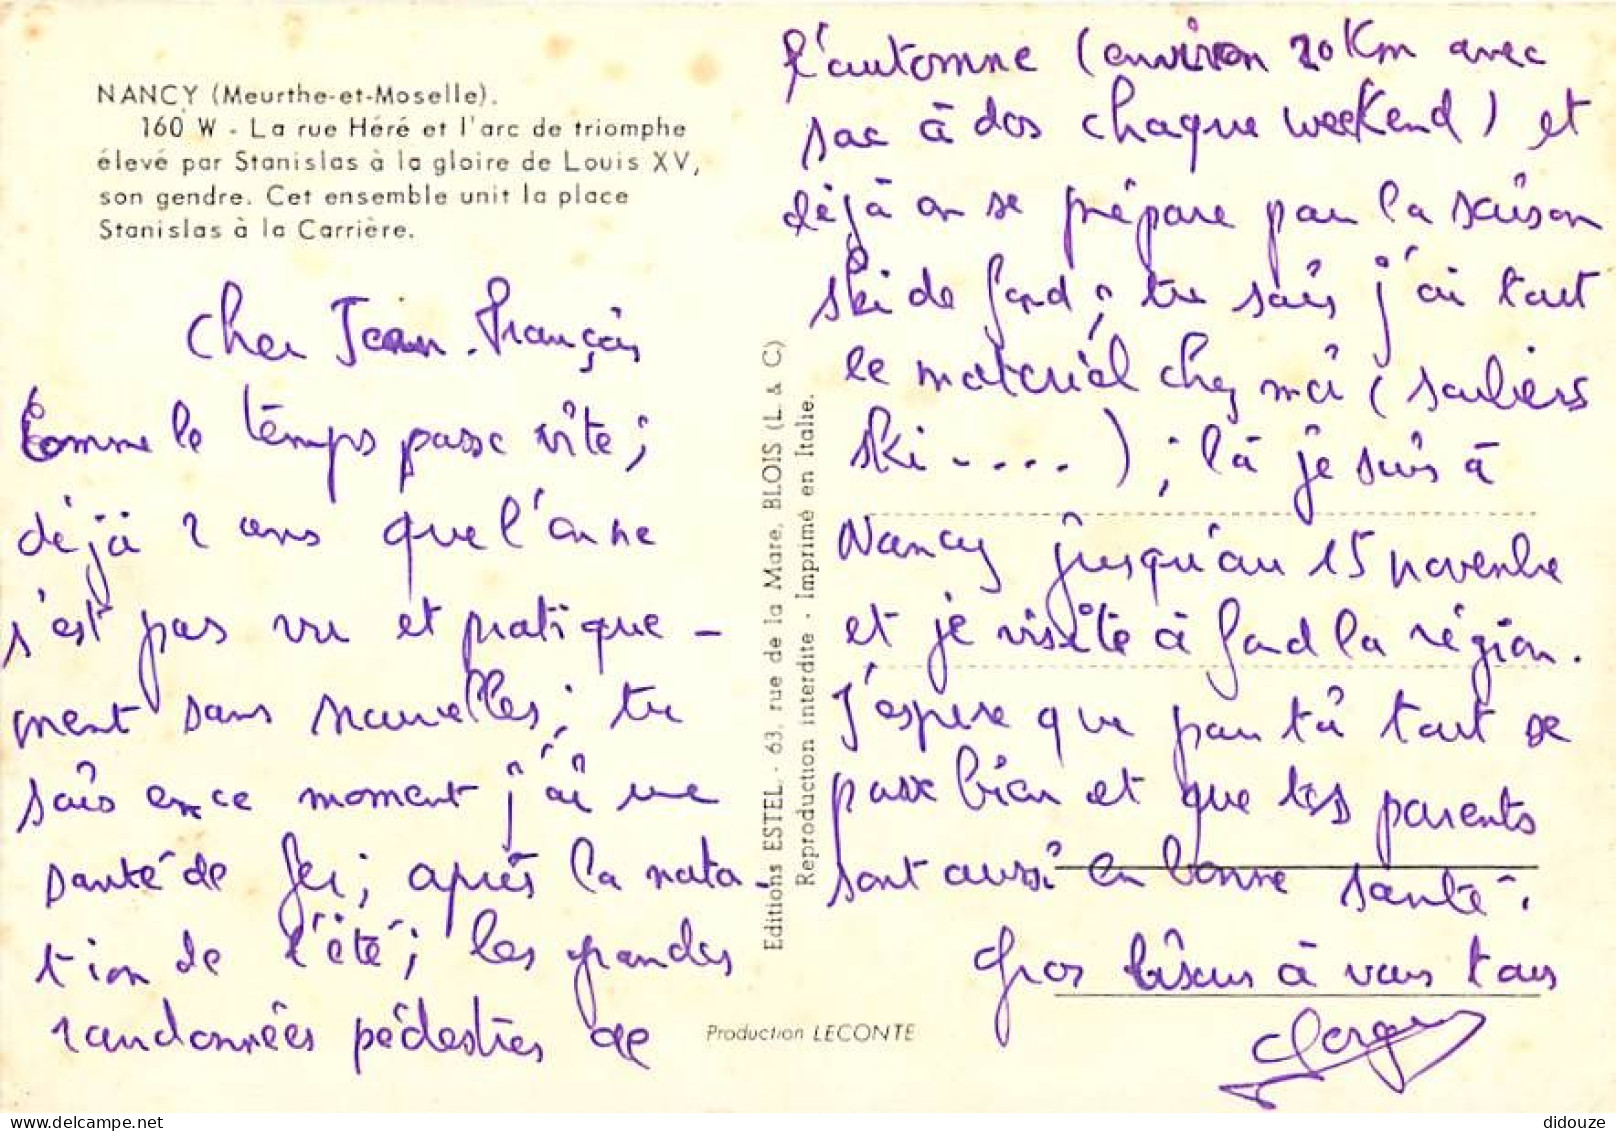 NANCY (Meurthe-et-Moselle).
160 W - La rue Héré et l'arc de triomphe
élevé par Stanislas à la gloire de Louis XV,
son gendre. Cet ensemble unit la place
Stanislas à la Carrière.
Cher Jean-François
Comme le temps passe vite ;
déjà 2 ans que l'on ne
s'est pas vu et pratique-
ment sans nouvelles ; tu
sais en ce moment j'ai une
santé de fer ; après la nata-
tion de l'été ; les grandes
randonnées pédestres de
Editions ESTEL. - 63, rue de la Mare, BLOIS (L. & C.)
Reproduction interdite - Imprimé en Italie.
Production LECONTE
l'automne (environ 20 Km avec
sac à dos chaque weekend) et
déjà on se prépare pour la saison
ski de fond ; tu sais j'ai tout
le matériel chez moi (souliers
ski - . . . . ) ; là je suis à
Nancy jusqu'au 15 novembre
et je visite à fond la région.
J'espère que pour toi tout se
passe bien et que tes parents
sont aussi en bonne santé.
Gros bisous à vous tous
didouze